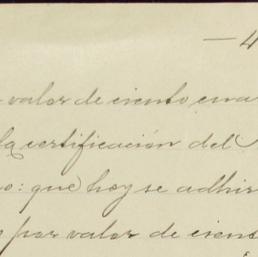 — 4
valor de ciento cua
la certificación del
o: que hoy se adhir
por valor de cient